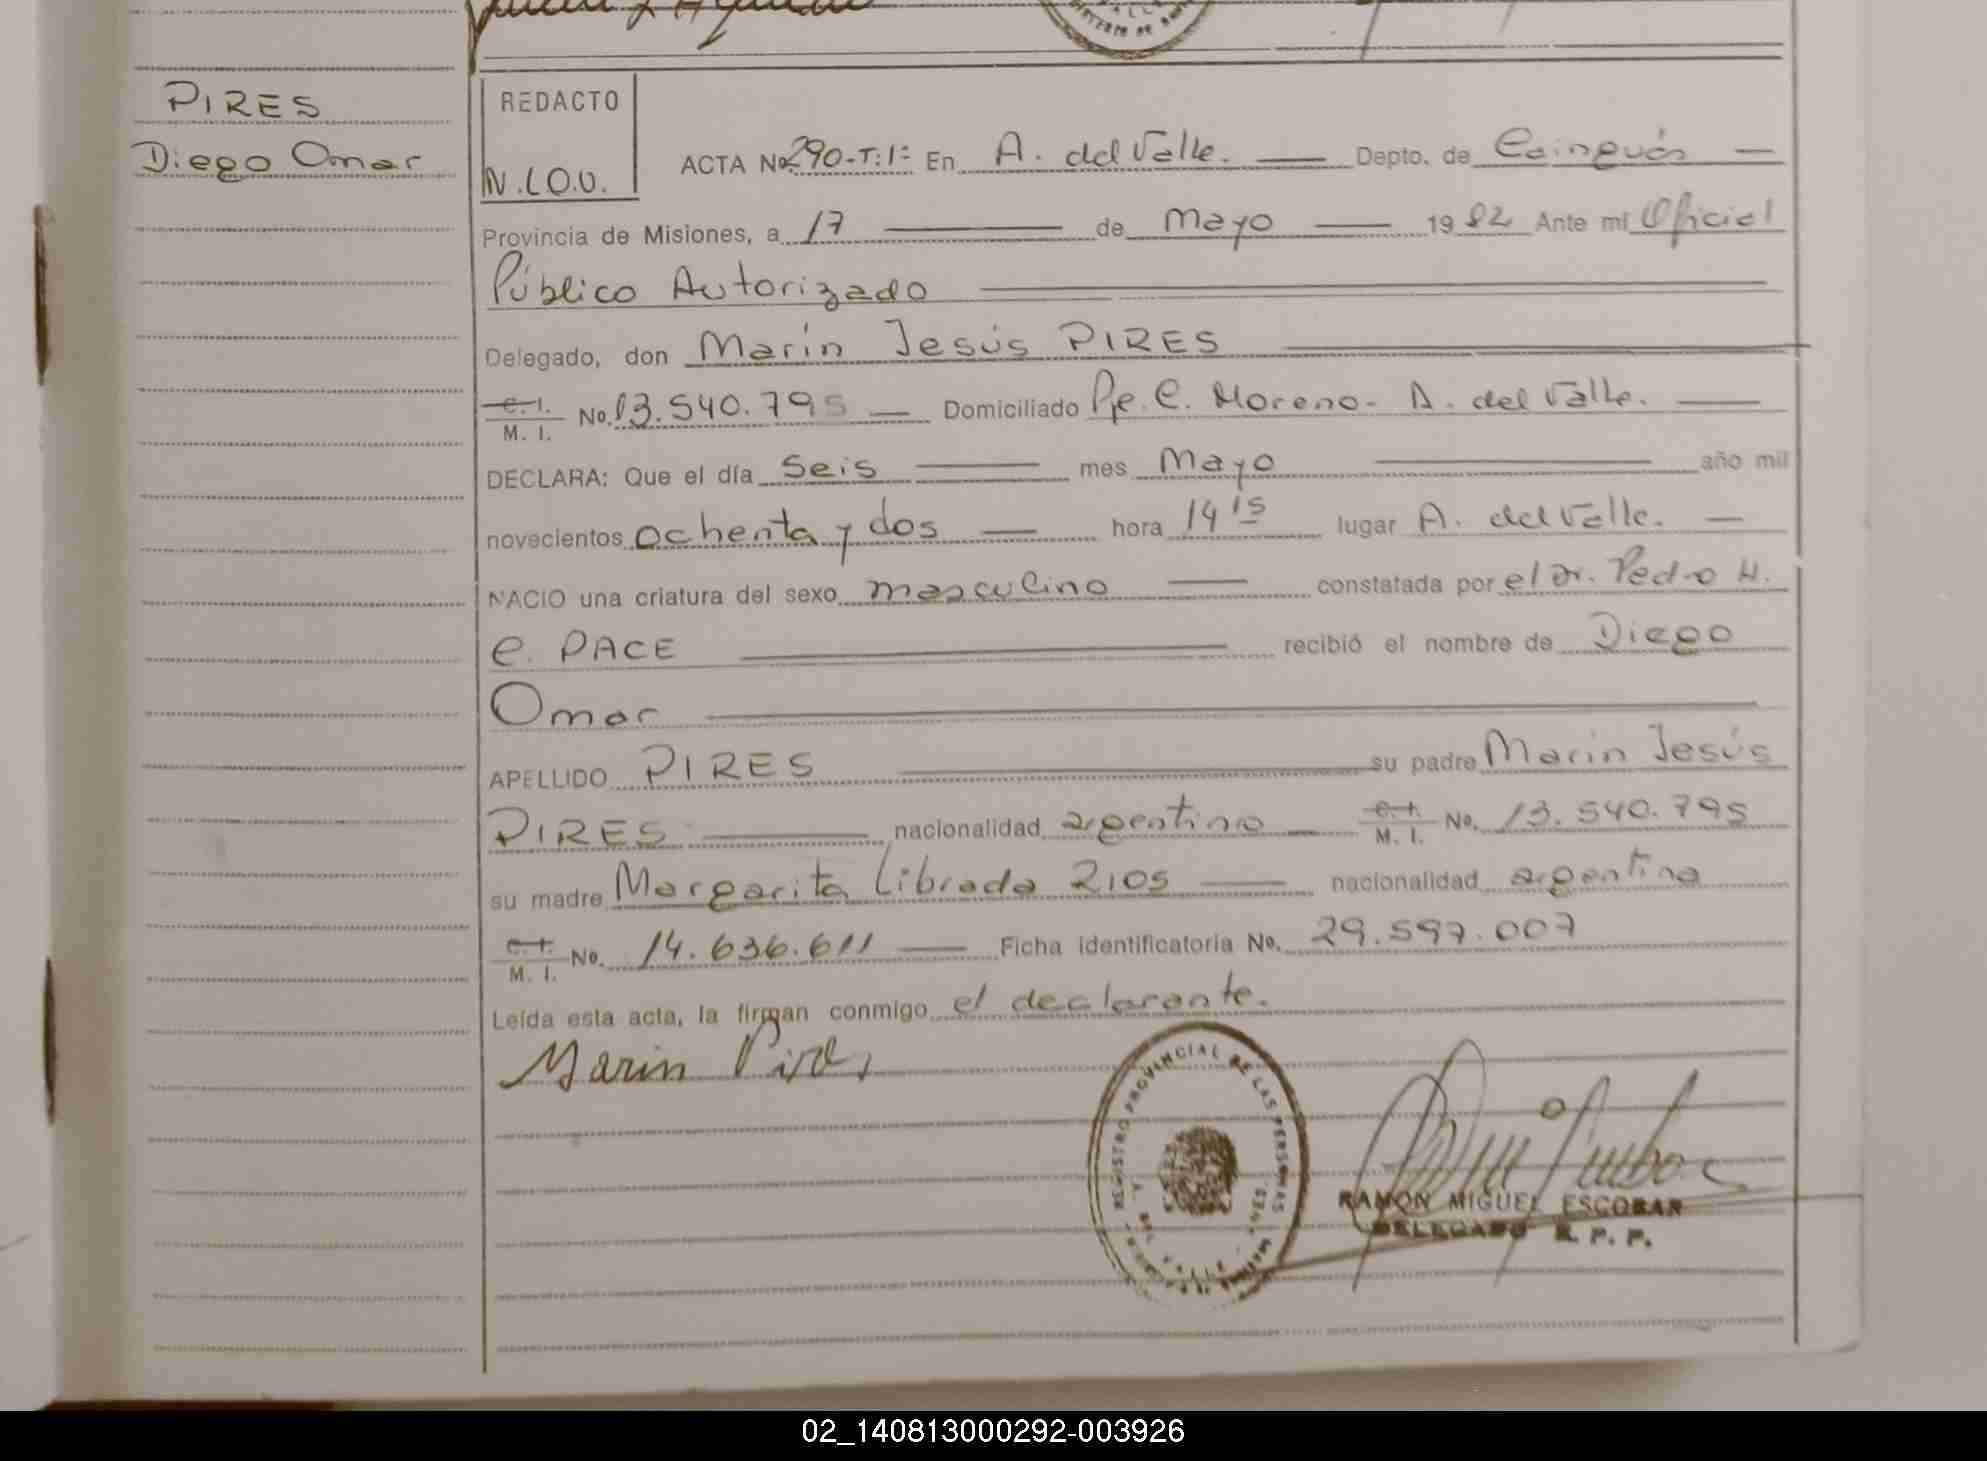 PIRES
Diego Omar
REDACTO
N.LO.U.
ACTA No. 290-T:1º En A. del Valle. Depto. de Cainguás
Provincia de Misiones, a 17 de Mayo 1982 Ante mí Oficial
Público Autorizado
Delegado, don Marín Jesús PIRES
C. I. M. I. No. 13.540.795 Domiciliado Pje. C. Moreno - A. del Valle.
DECLARA: Que el día seis mes Mayo año mil
novecientos ochenta y dos hora 14 15 lugar A. del Valle.
NACIO una criatura del sexo masculino constatada por el Dr. Pedro H.
C. PACE recibió el nombre de Diego
Omar
APELLIDO PIRES su padre Marín Jesús
PIRES nacionalidad argentino C. I. M. I. No. 13.540.795
su madre Margarita Librada RIOS nacionalidad argentina
C. I. M. I. No. 14.636.611 Ficha identificatoria No. 29.597.007
Leída esta acta, la firman conmigo el declarante.
Marin Pires
REGISTRO PROVINCIAL DE LAS PERSONAS
RAMON MIGUEL ESCOBAR
DELEGADO R. P. P.
02_140813000292-003926